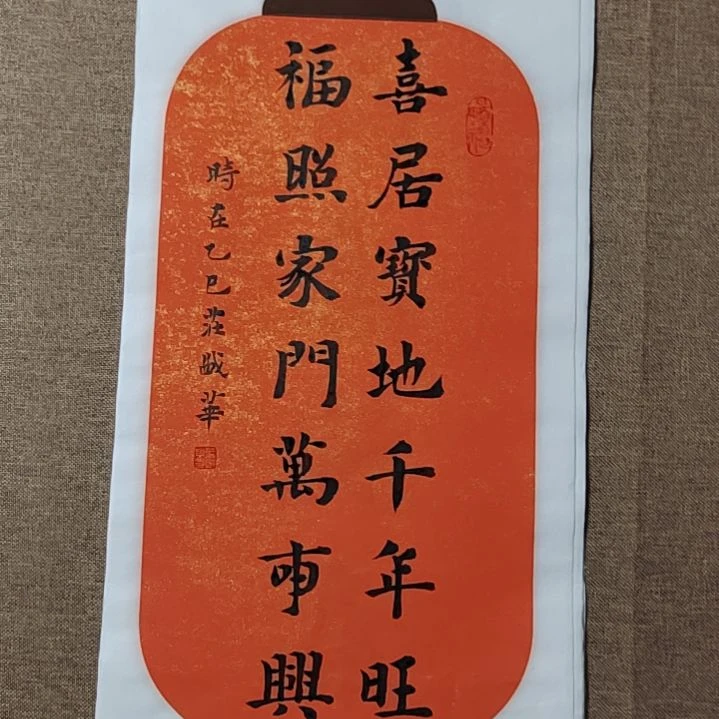 喜居寶地千年旺
福照家門萬事興
時在乙巳莊󠄁華